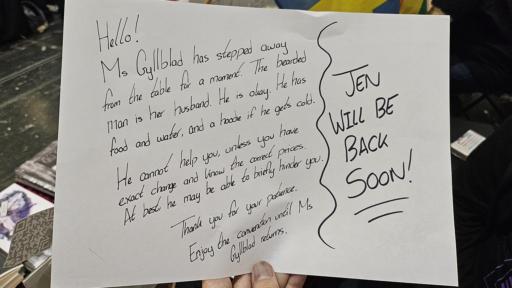 Hello!
Ms Gyllblad has stepped away
from the table for a moment. The bearded
man is her husband. He is okay. He has
food and water, and a hoodie if he gets cold.
He cannot help you, unless you have
exact change and know the correct prices.
At best he may be able to briefly hinder you.
Thank you for your patience.
Enjoy the convention until Ms
Gyllblad returns.
JEN
WILL BE
BACK
SOON!